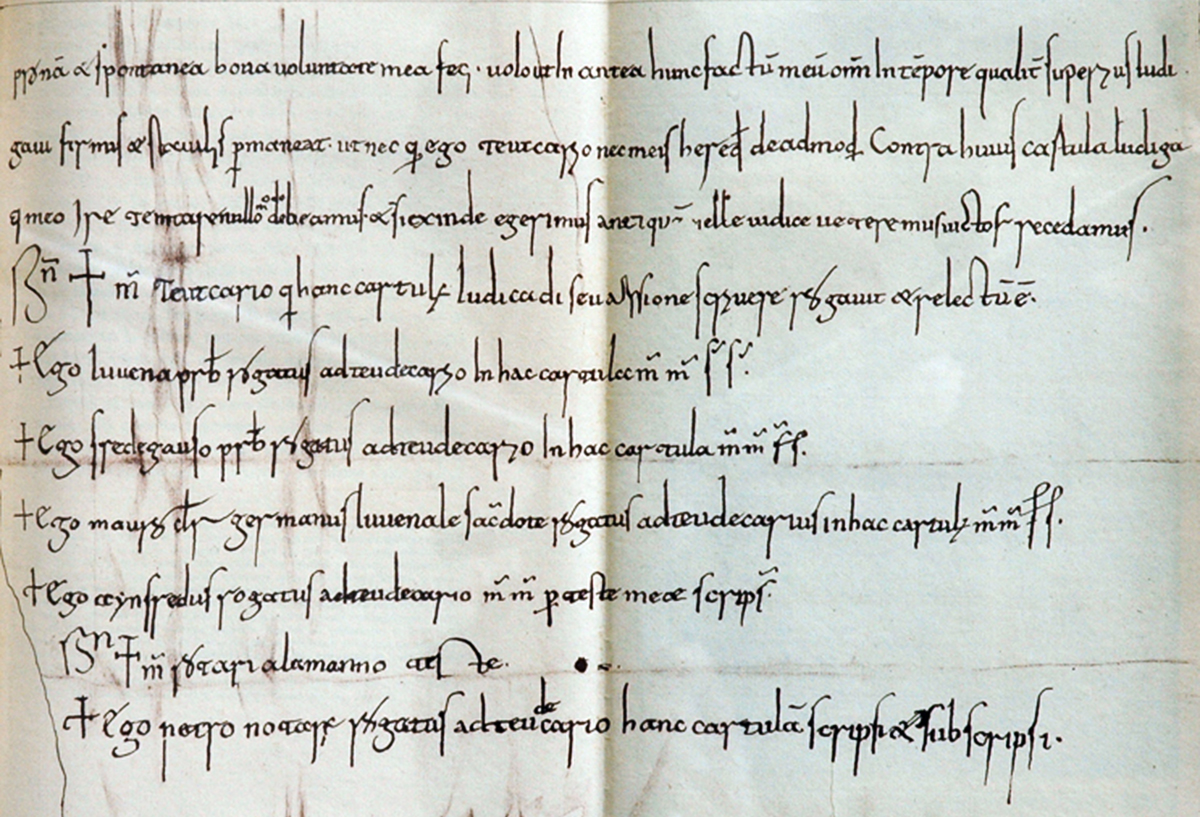 & spontanea bona voluntate mea feci. volo ut In antea hunc factū meū om̄ In tēpore qualit̄ super
firmus & stabilis p̄maneat. ut nec q̄ ego Teutcarzo nec meis hered̄ de admod̄. Contra huius cartula Iudiga
q meo Ire temtare nullo debeamus. & si exinde egerimus ante velle vetere mus uictos recedamus.
Sn̄ ✝ m̄ Teutcario q̄ hanc cartulę Iudicadi seu assione scrivere rogavit & relectū ē.
✝ Ego Iuvena prb̄ rogatus ad teudecarzo In hac cartulec m̄ m̄ s̄ s̄.
✝ Ego fredegauso prb̄ rogatus ad teudecarzo In hac cartula m̄ m̄ s̄ s.
✝ Ego germanus Iuvenale sac̄dote rogatus ad teudecarius in hac cartulę m̄ m̄ s s.
✝ Ego rogatus ad teudecario m̄ m̄ p̄ teste meae scrips̄.
Sn ✝ m̄ rotari alamanno teste.
✝ Ego petro notarę rogatus ad teudecario hanc cartulā scripsi & subscripsi.